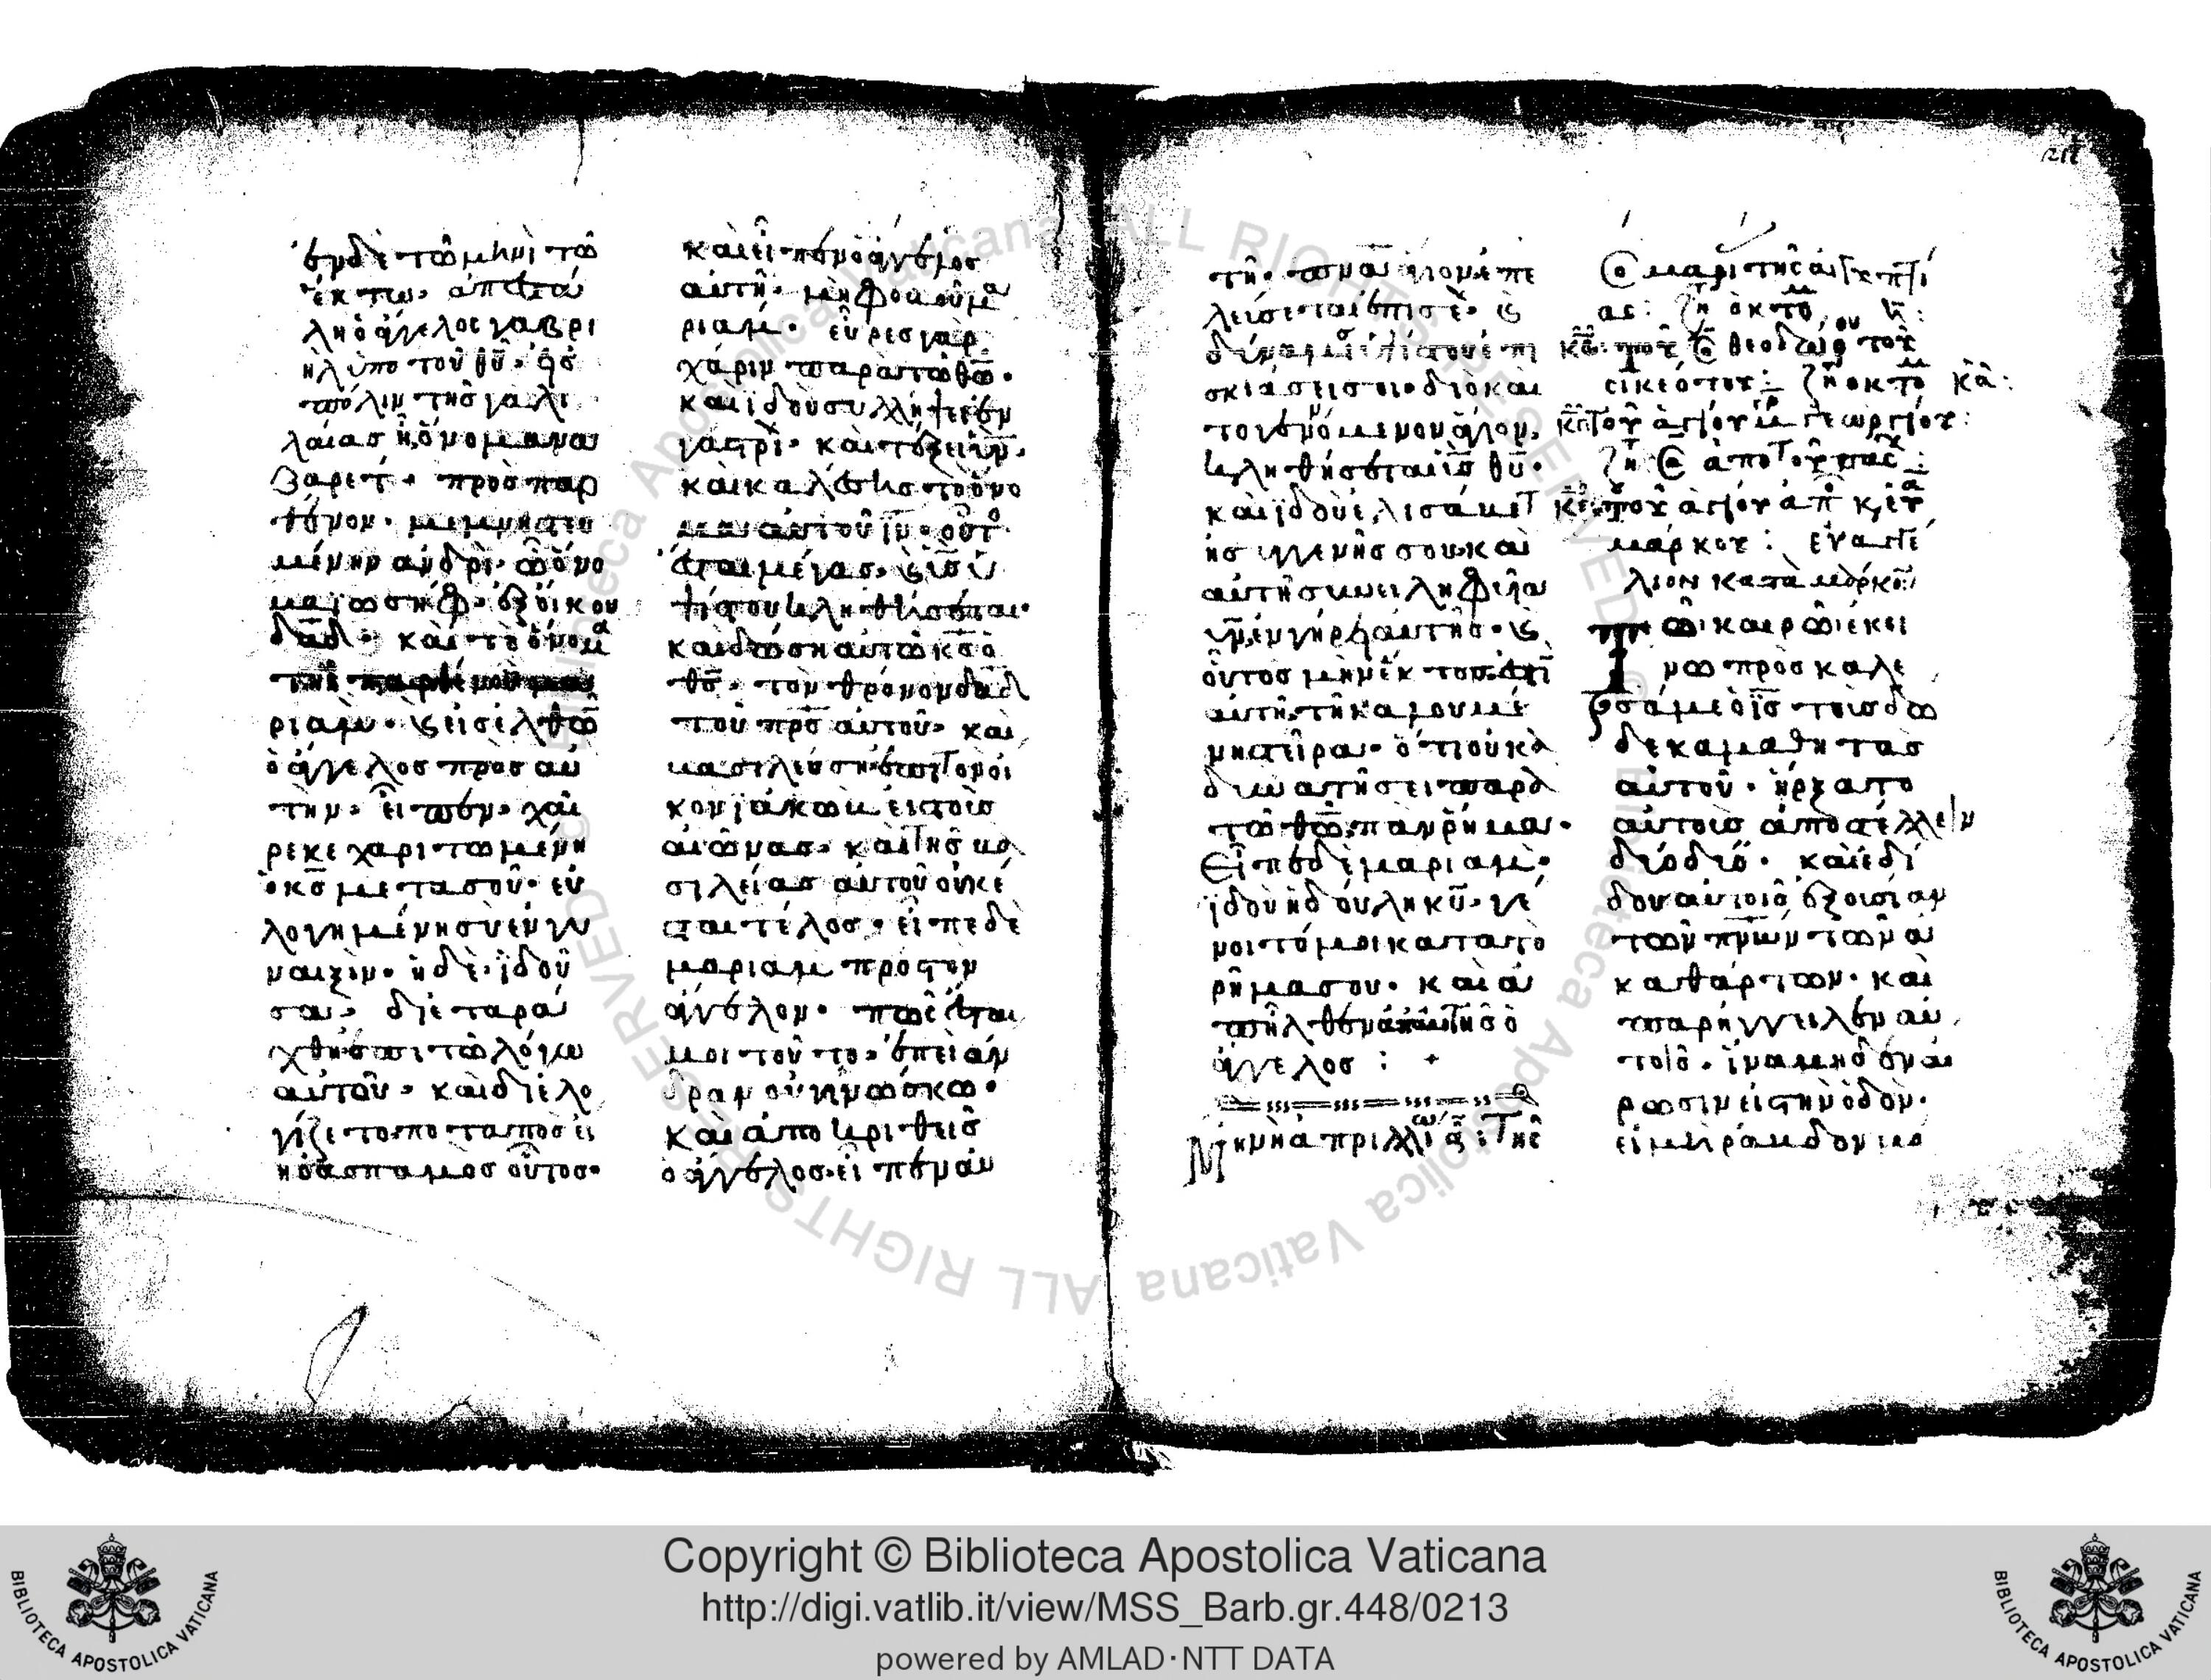 ἐν δὲ τῶ μηνὶ τῶ
ἕκτω· ἀπεστά
λη ὁ ἄγγελος γαβρι
ὴλ ὑπὸ τοῦ θῦ· εἰς
πόλιν τῆς γαλι
λαίας ἧ ὄνομα να
ζαρετ· πρὸς παρ
θένον· μεμνηστευ
μένην ἀνδρὶ· ὧ ὄνο
μα ἰωσὴφ· ἐξ οἴκου
δαδ· καὶ τὸ ὄνομα
τῆς παρθένου μα
ριαμ· καὶ εἰσελθὼν
ὁ ἄγγελος πρὸς αὐ
τὴν· εἶπεν· χαῖ
ρε κεχαριτωμένη
ὁ κς μετα σοῦ· εὐ
λογημένη σὺ ἐν γυ
ναιξὶν· ἡ δὲ ἰδοῦ
σα· διεταρά
χθη ἐπι τῶ λόγω
αὐτοῦ· καὶ διελο
γίζετο ποταπὸς εἴ
η ὁ ἀσπασμὸς οὗτος·
καὶ εἶπεν ὁ ἄγγελος
αὐτῆ· μὴ φοβοῦ μα
ριαμ· εὗρες γὰρ
χάριν παρὰ τῶ θῶ·
καὶ ἰδοὺ συλλήψει ἐν
γαστρὶ· καὶ τέξει υν·
καὶ καλέσης τὸ ὄνο
μα αὐτοῦ ιν· οὗτος
ἔσται μέγας· καὶ υς ὑ
ψίστου κληθήσεται·
καὶ δώση αὐτῶ κς ὁ
θς· τὸν θρόνον δαδ
τοῦ πρς αὐτοῦ· καὶ
βασιλεύση ἐπι τὸν οἶ
κον ἰακὼβ εἰς τοὺς
αἰῶνας· καὶ τῆς βα
σιλείας αὐτοῦ οὐκ ἔ
σται τέλος· εἶπε δὲ
μαριαμ πρὸς τὸν
ἄγγελον· πῶς ἔσται
μοι τοῦτο· ἐπεὶ ἄν
δρα οὐ γινώσκω·
καὶ ἀποκριθεὶς
ὁ ἄγγελος εἶπεν αὐ
τῆ· πνα ἅγιον ἐπε
λεύσεται ἐπι σὲ· καὶ
δύναμις ὑψίστου ἐπι
σκιάσει σοι· διὸ καὶ
τὸ γεννώμενον ἅγιον,
κληθήσεται υς θῦ·
καὶ ἰδοὺ ἐλισάβετ
ἡ συγγενῆς σου καὶ
αὐτὴ συνειληφυῖα
υν ἐν γήρει αὐτῆς· καὶ
οὗτος μὴν ἕκτος ἐστὶ
αὐτῆ τῆ καλουμέ
νη στείρα· ὅτι οὐκ ἀ
δυνατήσει παρὰ
τῶ θῶ πᾶν ῥῆμα·
εἶπε δὲ μαριαμ·
ἰδοὺ ἡ δούλη κῦ· γέ
νοιτό μοι κατα τὸ
ῥῆμα σου· καὶ ἀ
πῆλθεν ἀπ αὐτῆς ὁ
ἄγγελος : +
Μηνὶ ἀπριλλίω α: τῆς
ὁσ μαρίας τῆς αἰγυπτί
ας: ζη ὀκτο η:
κβ· τοῦ ὁσ θεοδώρου τοῦ
συκεότου: ζη ὀκτο κα:
κγ τοῦ ἁγίου μρ γεωργίου:
ζη ἀπὸ τοῦ πασχ:
κε· τοῦ ἁγίου ἀπ κ, εὐ
μάρκου: εὐαγγέ
λιον κατὰ μάρκον
Τῶ καιρῶ ἐκεί
νω προσκαλε
σάμε ὁ ις τοὺς δώ
δεκα μαθητὰς
αὐτοῦ· ἤρξατο
αὐτοὺς ἀποστέλλειν
δύο δύο· καὶ ἐδί
δου αὐτοῖς ἐξουσίαν
τῶν πνων τῶν ἀ
καθάρτων· καὶ
παρήγγειλεν αὐ
τοῖς· ἵνα μηδὲν αἴ
ρωσιν εἰς τὴν ὁδὸν·
εἰ μὴ ῥάβδον μο